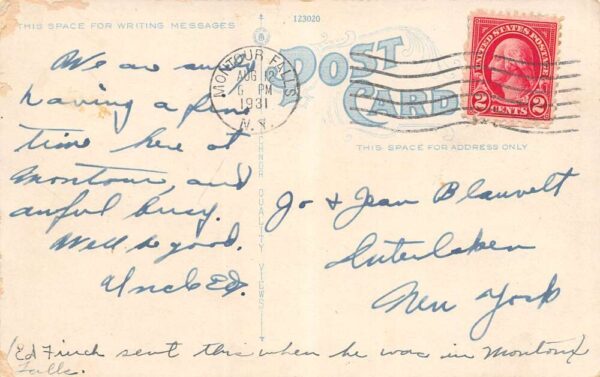 THIS SPACE FOR WRITING MESSAGES
123020
POST
CARD
THIS SPACE FOR ADDRESS ONLY
MONTOUR FALLS
AUG 12
6 PM
1931
N.Y.
UNITED STATES POSTAGE
2 CENTS 2
We are surely
having a fine
time here at
Montour, and
awful busy.
Well be good.
Uncle Ed.
TICHNOR QUALITY VIEWS
Jo & Jean Blauvelt
Interlaken
New York
(Ed Finch sent this when he was in Montour
Falls.